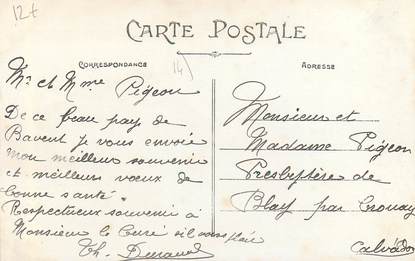 12t
CARTE POSTALE
CORRESPONDANCE
14)
ADRESSE
Mr et Mme Pigeon
De ce beau pays de
Bavent je vous envoie
mon meilleur souvenir
et meilleurs vœux de
bonne santé
Respectueux souvenir à
Monsieur le Curé s'il vous plaît
Th. Durand
Monsieur et
Madame Pigeon
Presbytère de
Blay par Crouay
Calvados